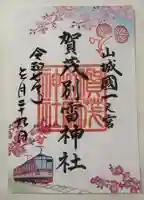 山城國一之宮
賀茂別雷神社
令和七年
七月二十九日